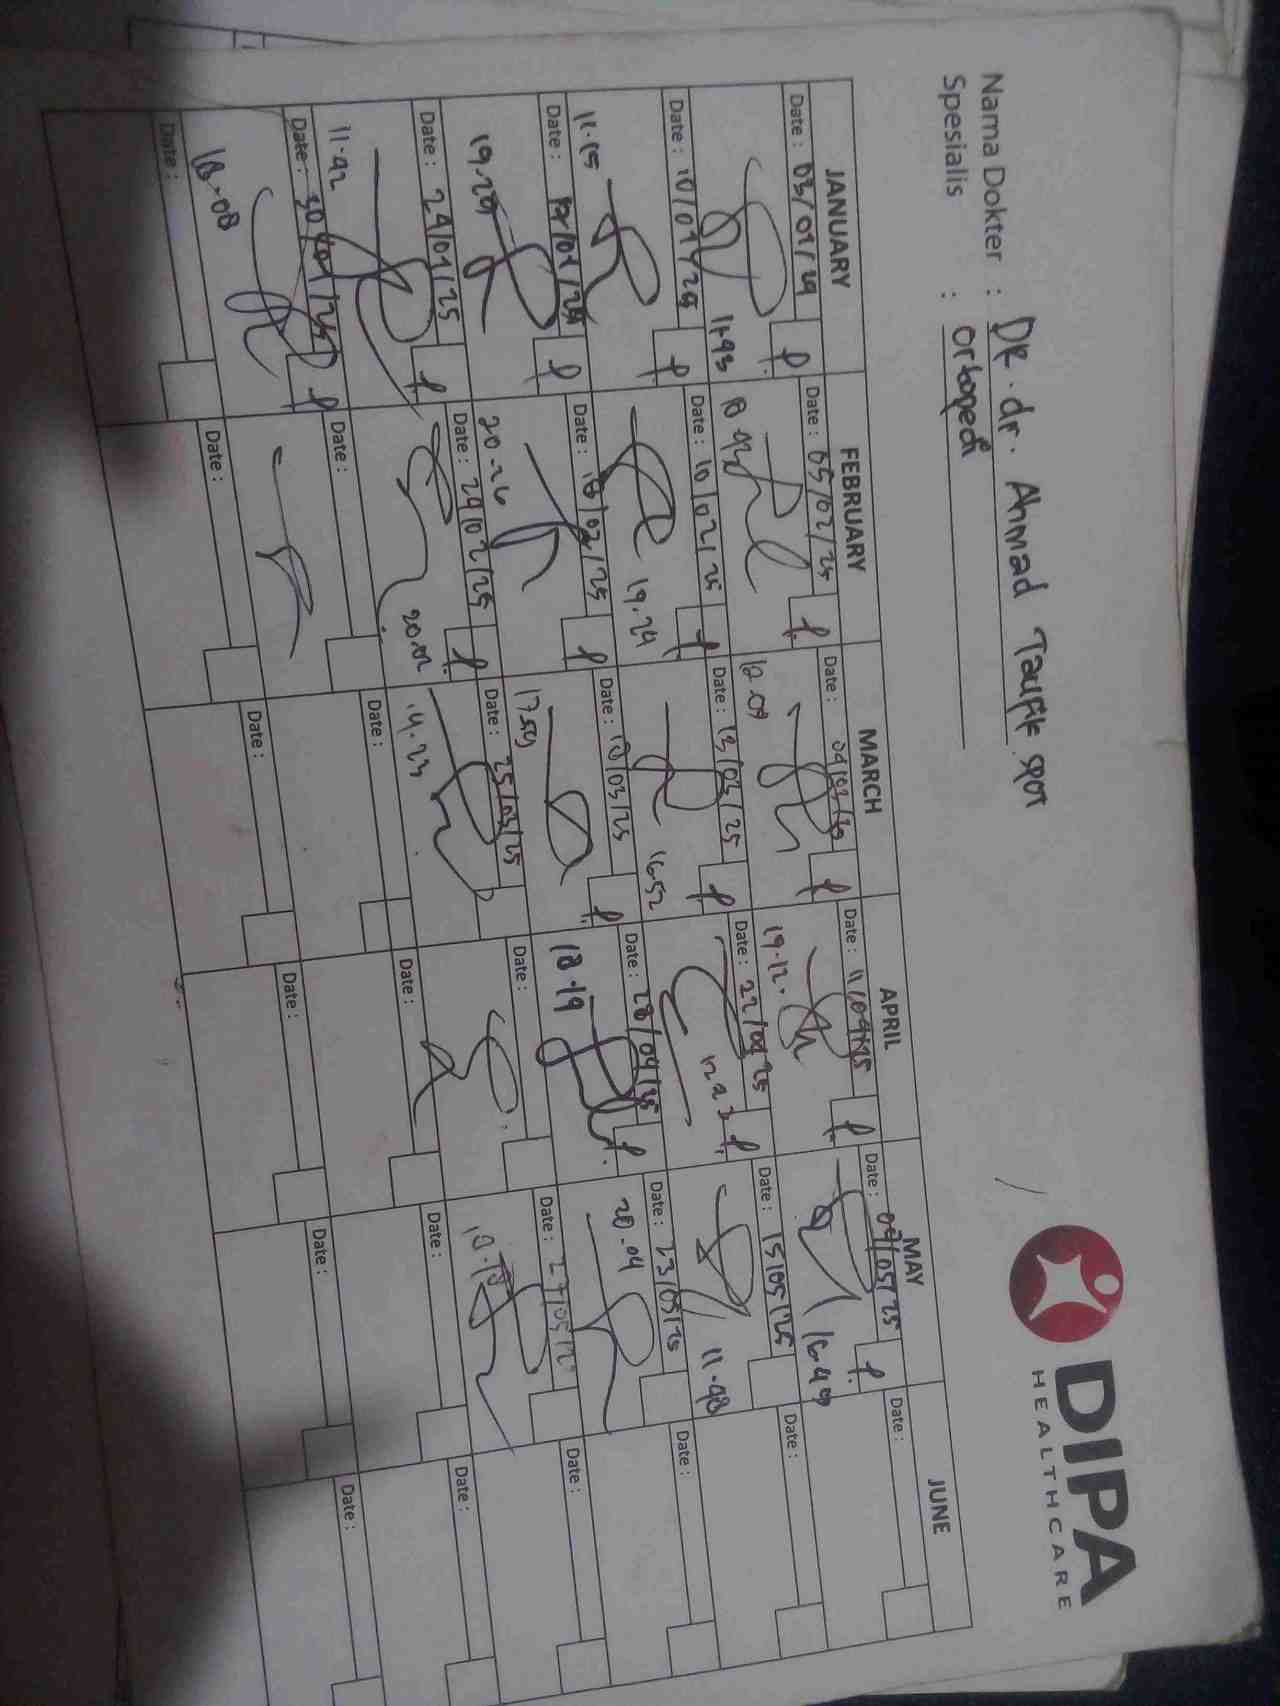 DIPA
HEALTHCARE
Nama Dokter : DR. dr. Ahmad Taufik SPOT
Spesialis : Ortopedi
JANUARY FEBRUARY MARCH APRIL MAY JUNE
Date : 03/01/25 Date : 05/02/25 Date : 04/03/25 Date : 11/04/25 Date : 09/05/25 Date :
11.43 18.43 12.09 19.12 16.49
Date : 10/01/25 Date : 10/02/25 Date : 13/03/25 Date : 22/04/25 Date : 15/05/25 Date :
11.15 19.24 16.52 12.23 11.48
Date : 17/01/25 Date : 18/02/25 Date : 18/03/25 Date : 28/04/25 Date : 23/05/25 Date :
19.20 20.26 17.53 18.19 20.04
Date : 24/01/25 Date : 24/02/25 Date : 25/03/25 Date : Date : 27/05/2 Date :
11.42 20.02 14.23 18.18
Date : 30/01/25 Date : Date : Date : Date : Date :
18.08
Date : Date : Date : Date : Date : Date :